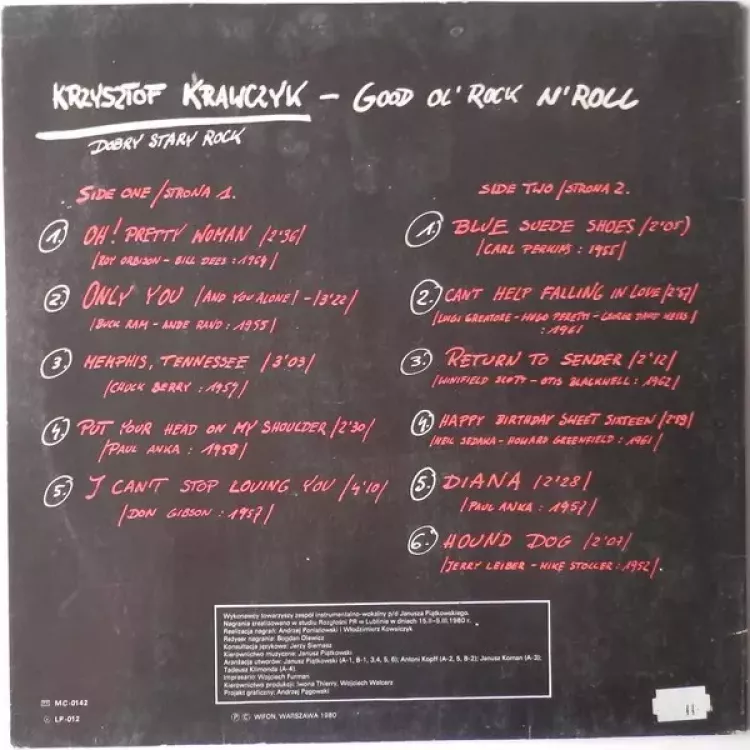 KRZYSZTOF KRAWCZYK – GOOD OL' ROCK N' ROLL
DOBRY STARY ROCK
SIDE ONE /STRONA 1.
1. OH! PRETTY WOMAN /2'36/
/ROY ORBISON – BILL DEES : 1964/
2. ONLY YOU /AND YOU ALONE/ – /3'22/
/BUCK RAM – ANDE RAND : 1955/
3. MEMPHIS, TENNESSEE /3'03/
/CHUCK BERRY : 1959/
4. PUT YOUR HEAD ON MY SHOULDER /2'30/
/PAUL ANKA : 1958/
5. I CAN'T STOP LOVING YOU /4'10/
/DON GIBSON : 1957/
SIDE TWO /STRONA 2.
1. BLUE SUEDE SHOES /2'05/
/CARL PERKINS : 1955/
2. CAN'T HELP FALLING IN LOVE /2'57/
/LUIGI CREATORE – HUGO PERETTI – GEORGE DAVID WEISS/
: 1961
3. RETURN TO SENDER /2'12/
/WINIFIELD SCOTT – OTIS BLACKWELL : 1962/
4. HAPPY BIRTHDAY SWEET SIXTEEN /2'19/
/NEIL SEDAKA – HOWARD GREENFIELD : 1961/
5. DIANA /2'28/
/PAUL ANKA : 1957/
6. HOUND DOG /2'07/
/JERRY LEIBER – MIKE STOLLER : 1952/.
Wykonawcy towarzyszy zespół instrumentalno-wokalny p/d Janusza Piątkowskiego.
Nagrania zrealizowano w studiu Rozgłośni PR w Lublinie w dniach 15.II–5.III.1980 r.
Realizacja nagrań: Andrzej Poniatowski i Włodzimierz Kowalczyk
Reżyser nagrania: Bogdan Olewicz
Konsultacja językowa: Jerzy Siemasz
Kierownictwo muzyczne: Janusz Piątkowski
Aranżacja utworów: Janusz Piątkowski (A-1, B-1, 3,4, 5, 6); Antoni Kopff (A-2, 5, B-2); Janusz Koman (A-3);
Tadeusz Klimonda (A-4).
Impresario: Wojciech Furman
Kierownictwo produkcji: Iwona Thierry, Wojciech Walczers
Projekt graficzny: Andrzej Pągowski
MC-0142
LP-012
Ⓟ © WIFON, WARSZAWA 1980